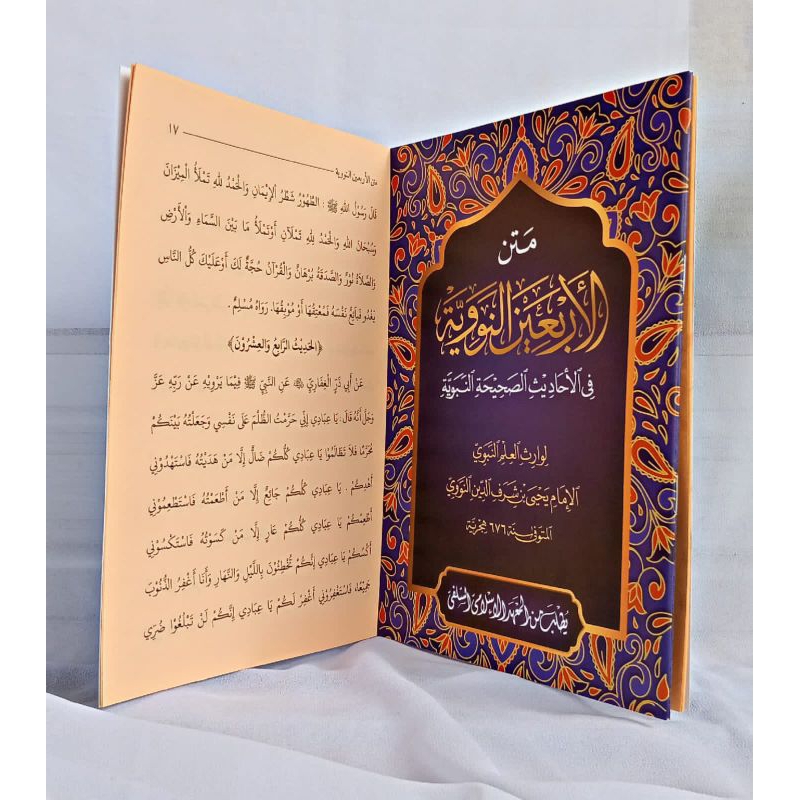 متن الأربعين النووية ١٧
قَالَ رَسُولُ اللهِ ﷺ : الطُّهُوْرُ شَطْرُ الْإِيْمَانِ وَالْحَمْدُ لِلّٰهِ تَمْلَأُ الْمِيْزَانَ
وَسُبْحَانَ اللهِ وَالْحَمْدُ لِلّٰهِ تَمْلَآنِ أَوْتَمْلَأُ مَا بَيْنَ السَّمَاءِ وَالْأَرْضِ
وَالصَّلَاةُ نُوْرٌ وَالصَّدَقَةُ بُرْهَانٌ وَالْقُرْآنُ حُجَّةٌ لَكَ أَوْعَلَيْكَ كُلُّ النَّاسِ
يَغْدُو فَبَائِعٌ نَفْسَهُ فَمُعْتِقُهَا أَوْ مُوْبِقُهَا. رَوَاهُ مُسْلِمٌ .
﴿الْحَدِيْثُ الرَّابِعُ وَالْعِشْرُوْنَ﴾
عَنْ أَبِي ذَرٍّ الْغِفَارِيِّ ﷺ عَنِ النَّبِيِّ ﷺ فِيْمَا يَرْوِيْهِ عَنْ رَبِّهِ عَزَّ
وَجَلَّ أَنَّهُ قَالَ: يَا عِبَادِي إِنِّي حَرَّمْتُ الظُّلْمَ عَلَى نَفْسِي وَجَعَلْتُهُ بَيْنَكُمْ
مُحَرَّمًا فَلَا تَظَالَمُوْا يَا عِبَادِي كُلُّكُمْ ضَالٌّ إِلَّا مَنْ هَدَيْتُهُ فَاسْتَهْدُوْنِي
أَهْدِكُمْ . يَا عِبَادِي كُلُّكُمْ جَائِعٌ إِلَّا مَنْ أَطْعَمْتُهُ فَاسْتَطْعِمُوْنِي
أُطْعِمْكُمْ يَا عِبَادِي كُلُّكُمْ عَارٍ إِلَّا مَنْ كَسَوْتُهُ فَاسْتَكْسُوْنِي
أَكْسُكُمْ يَا عِبَادِي إِنَّكُمْ تُخْطِئُوْنَ بِاللَّيْلِ وَالنَّهَارِ وَأَنَا أَغْفِرُ الذُّنُوْبَ
جَمِيْعًا، فَاسْتَغْفِرُوْنِي أَغْفِرْ لَكُمْ يَا عِبَادِي إِنَّكُمْ لَنْ تَبْلُغُوْا ضُرِّي
متن
الأربعين النووية
في الأحاديث الصحيحة النبوية
لوارث العلم النبوي
الإمام يحيى بن شرف الدين النووي
المتوفى سنة ٦٧٦ هجرية
يطلب من المعهد الإسلامي السلفي